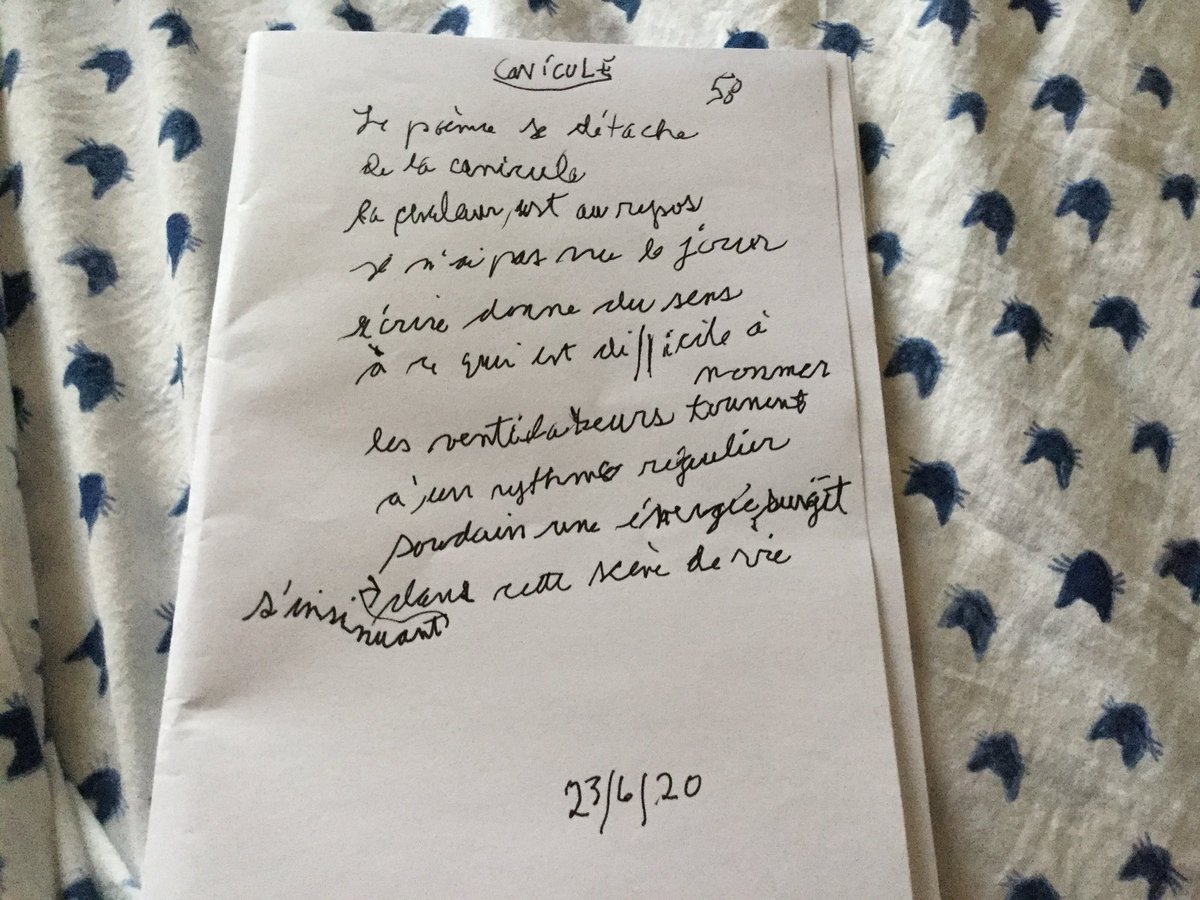 CANICULE
58
Le poème se détache
de la canicule
la chaleur, est au repos
je n'ai pas vu le jour
écrire donne du sens
à ce qui est difficile à
nommer
les ventilateurs tournent
à un rythme régulier
soudain une énergie surgit
s'insinuant dans cette scène de vie
23/6/20